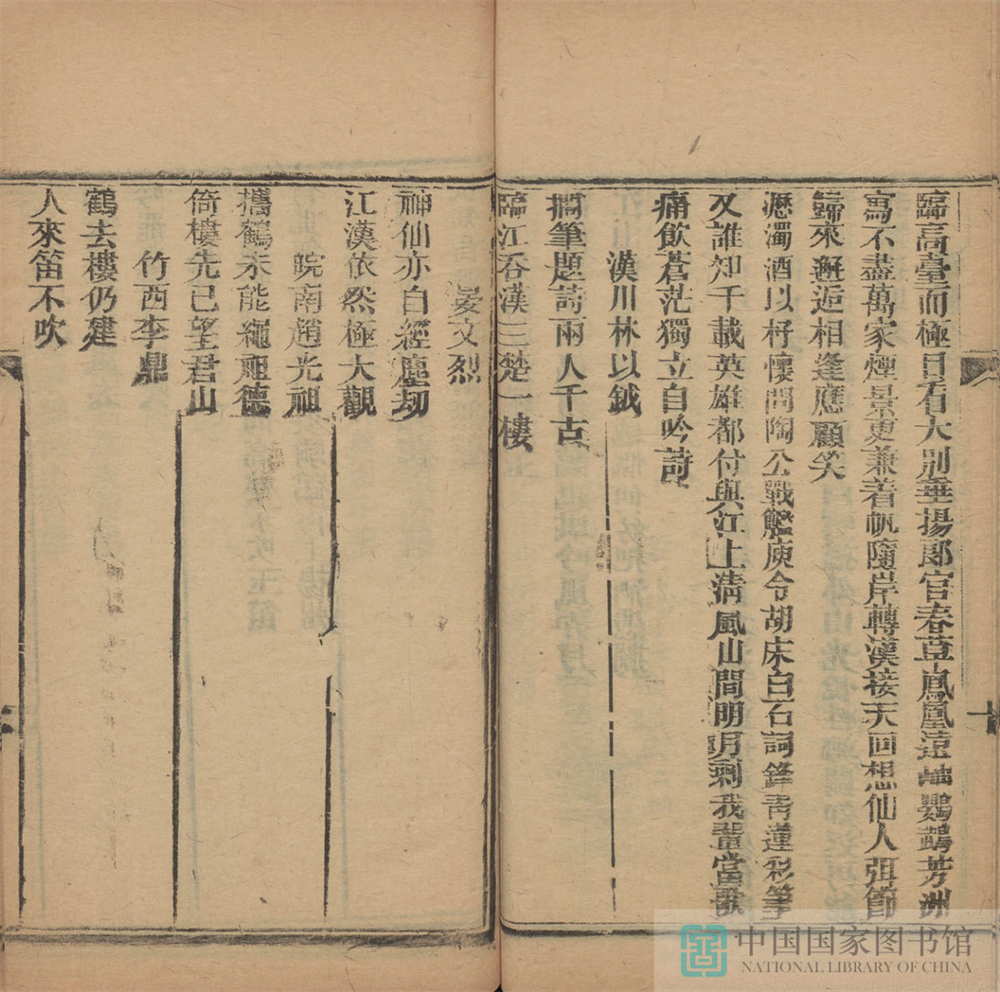 歸高臺而極目看大別垂揚郎官春草鳳凰遠岫鸚鵡芳洲
寫不盡萬家煙景更兼着帆隨岸轉漢接天回想仙人弭節
歸來邂逅相逢應顧笑
瀝濁酒以抒懷問陶公戰艦庾令胡床白石詞鋒青蓮彩筆
又誰知千載英雄都付與江上淸風山間明月剩我輩當歌
痛飲蒼茫獨立自吟詩
漢川林以鉞
擱筆題詩兩人千古
臨江呑漢三楚一樓
晏文烈
神仙亦自經塵刼
江漢依然極大觀
皖南趙光祖
攜鶴未能繩祖德
倚樓先已望君山
竹西李鼎
鶴去樓仍建
人來笛不吹
十
中国国家图书馆
NATIONAL LIBRARY OF CHINA